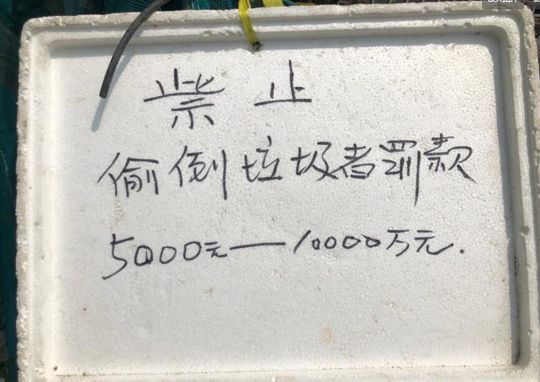 祡止
偷倒垃圾者罚款
5000元—10000万元.